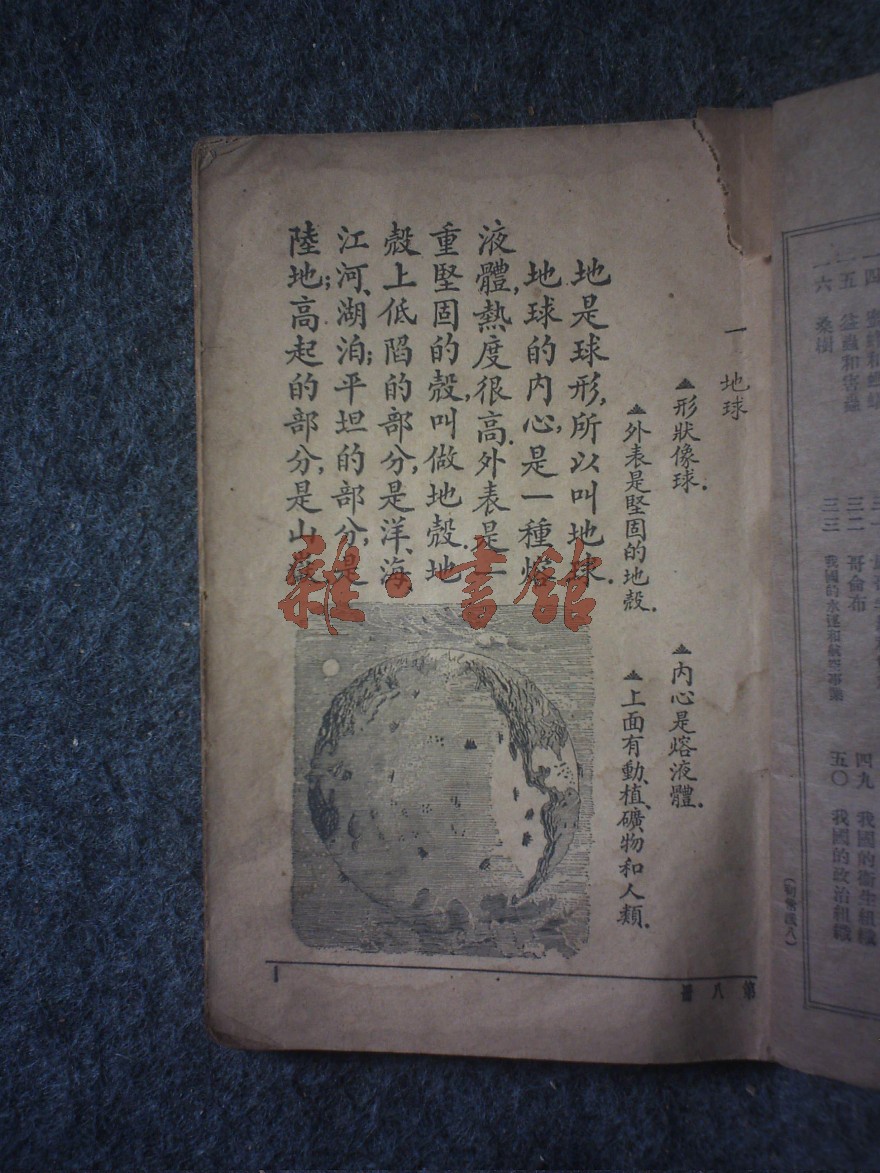 一 地球
▲形狀像球. ▲內心是熔液體.
▲外表是堅固的地殼. ▲上面有動、植、礦物和人類.
地是球形,所以叫地球.
地球的內心,是一種熔
液體,熱度很高.外表是一
重堅固的殼,叫做地殼.地
殼上低陷的部分,是洋、海、
江河、湖泊;平坦的部分,是
陸地;高起的部分,是山
雜·書館
1
第八冊
四
一五 益蟲和害蟲
一六 桑樹
三一
三二 哥倫布
三三 我國的水運和航空事業
四九 我國的衛生組織
五〇 我國的政治組織
(初常後八)